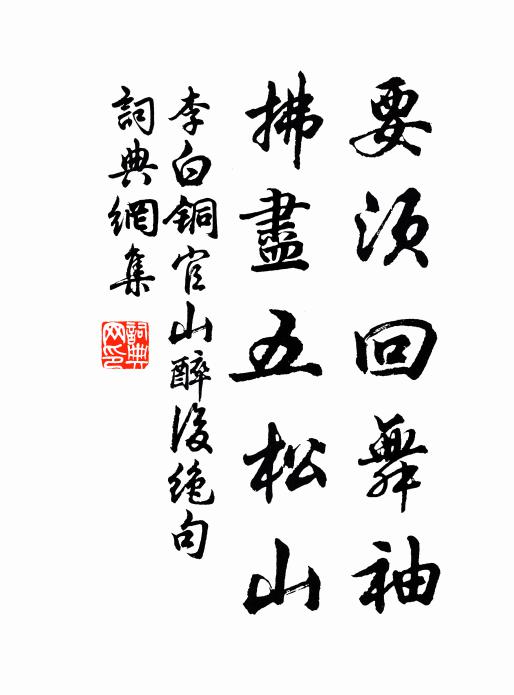 要須回舞袖
拂盡五松山
李白銅官山醉後絕句
詞典網集
詞典網印